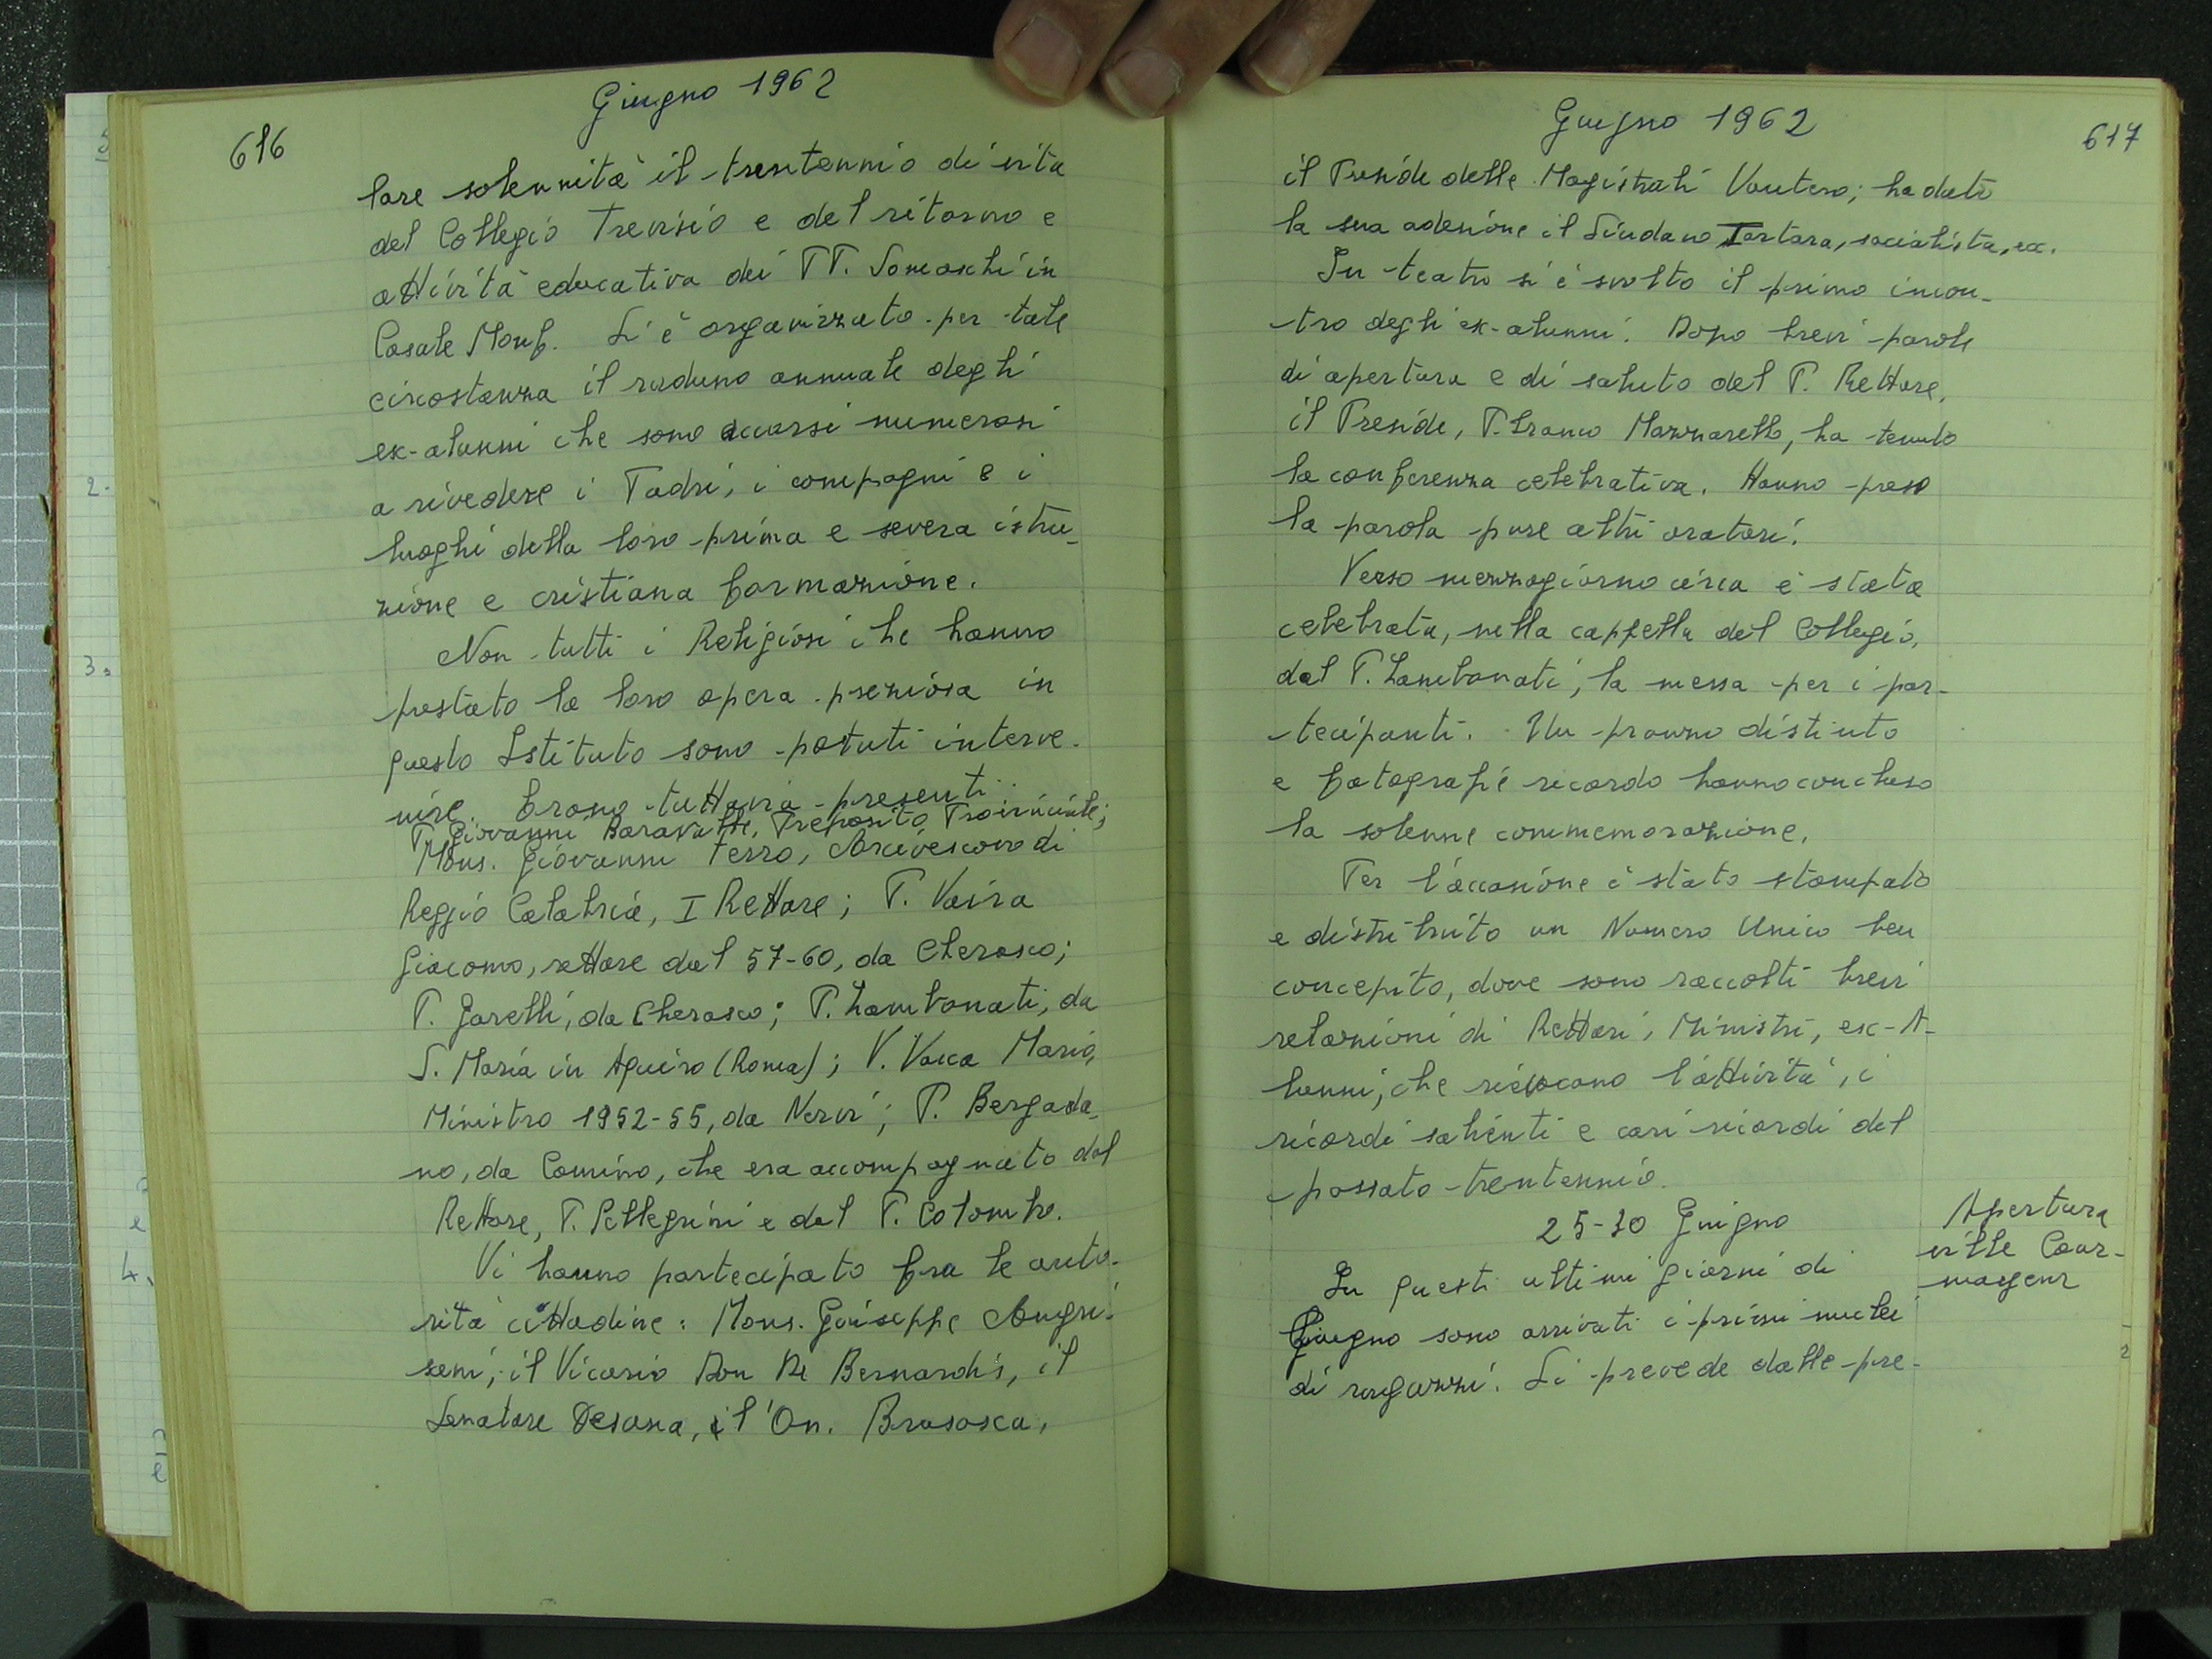 Giugno 1962
616
lare solennità il trentennio di vita
del Collegio Trevisio e del ritorno e
attività educativa dei PP. Somaschi in
Casale Monf. Si è organizzato per tale
circostanza il raduno annuale degli
ex-alunni che sono accorsi numerosi
a rivedere i Padri, i compagni e i
luoghi della loro prima e severa istru-
zione e cristiana formazione.
Non tutti i Religiosi che hanno
prestato la loro opera preziosa in
questo Istituto sono potuti interve-
nire. Erano tuttavia presenti
P. Giovanni Baravalle, Preposito Provinciale;
Mons. Giovanni Ferro, Arcivescovo di
Reggio Calabria, I Rettore; P. Vaira
Giacomo, rettore dal 57-60, da Cherasco;
P. Garelli, da Cherasco; P. Zambonati, da
S. Maria in Aquiro (Roma); P. Vacca Mario,
Ministro 1952-55, da Nervi; P. Bergada-
no, da Comino, che era accompagnato dal
Rettore, P. Pellegrini e dal P. Colombo.
Vi hanno partecipato fra le auto-
rità cittadine: Mons. Giuseppe Angri-
sani, il Vicario Don De Bernardis, il
Senatore Desana, il l'On. Brusasca,
Giugno 1962
617
il Preside delle Magistrali Vautero; ha dato
la sua adesione il Sindaco Tartara, socialista, ecc.
In teatro si è svolto il primo incon-
tro degli ex-alunni. Dopo brevi parole
di apertura e di saluto del P. Rettore,
il Preside, P. Franco Mazzarello, ha tenuto
la conferenza celebrativa. Hanno preso
la parola pure altri oratori.
Verso mezzogiorno circa è stata
celebrata, nella cappella del Collegio,
dal P. Zambonati, la messa per i par-
tecipanti. Un pranzo distinto
e fotografie ricordo hanno concluso
la solenne commemorazione.
Per l'occasione è stato stampato
e distribuito un Numero Unico ben
concepito, dove sono raccolti brevi
relazioni di Rettori, Ministri, ex-A-
lunni, che rievocano l'attività, i
ricordi salienti e cari ricordi del
passato trentennio.
25-30 Giugno
Apertura
ville Cour-
mayeur
In questi ultimi giorni di
Giugno sono arrivati i primi nuclei
di ragazzi. Si prevede dalle pre-